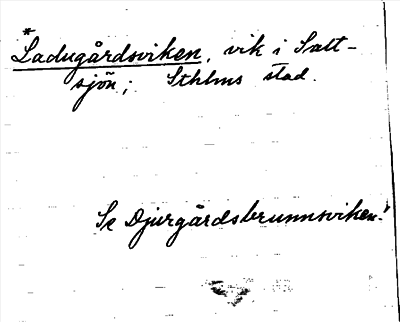 *
Ladugårdsviken, vik i Salt-
sjön; Sthlms stad.
Se Djurgårdsbrunnsviken!